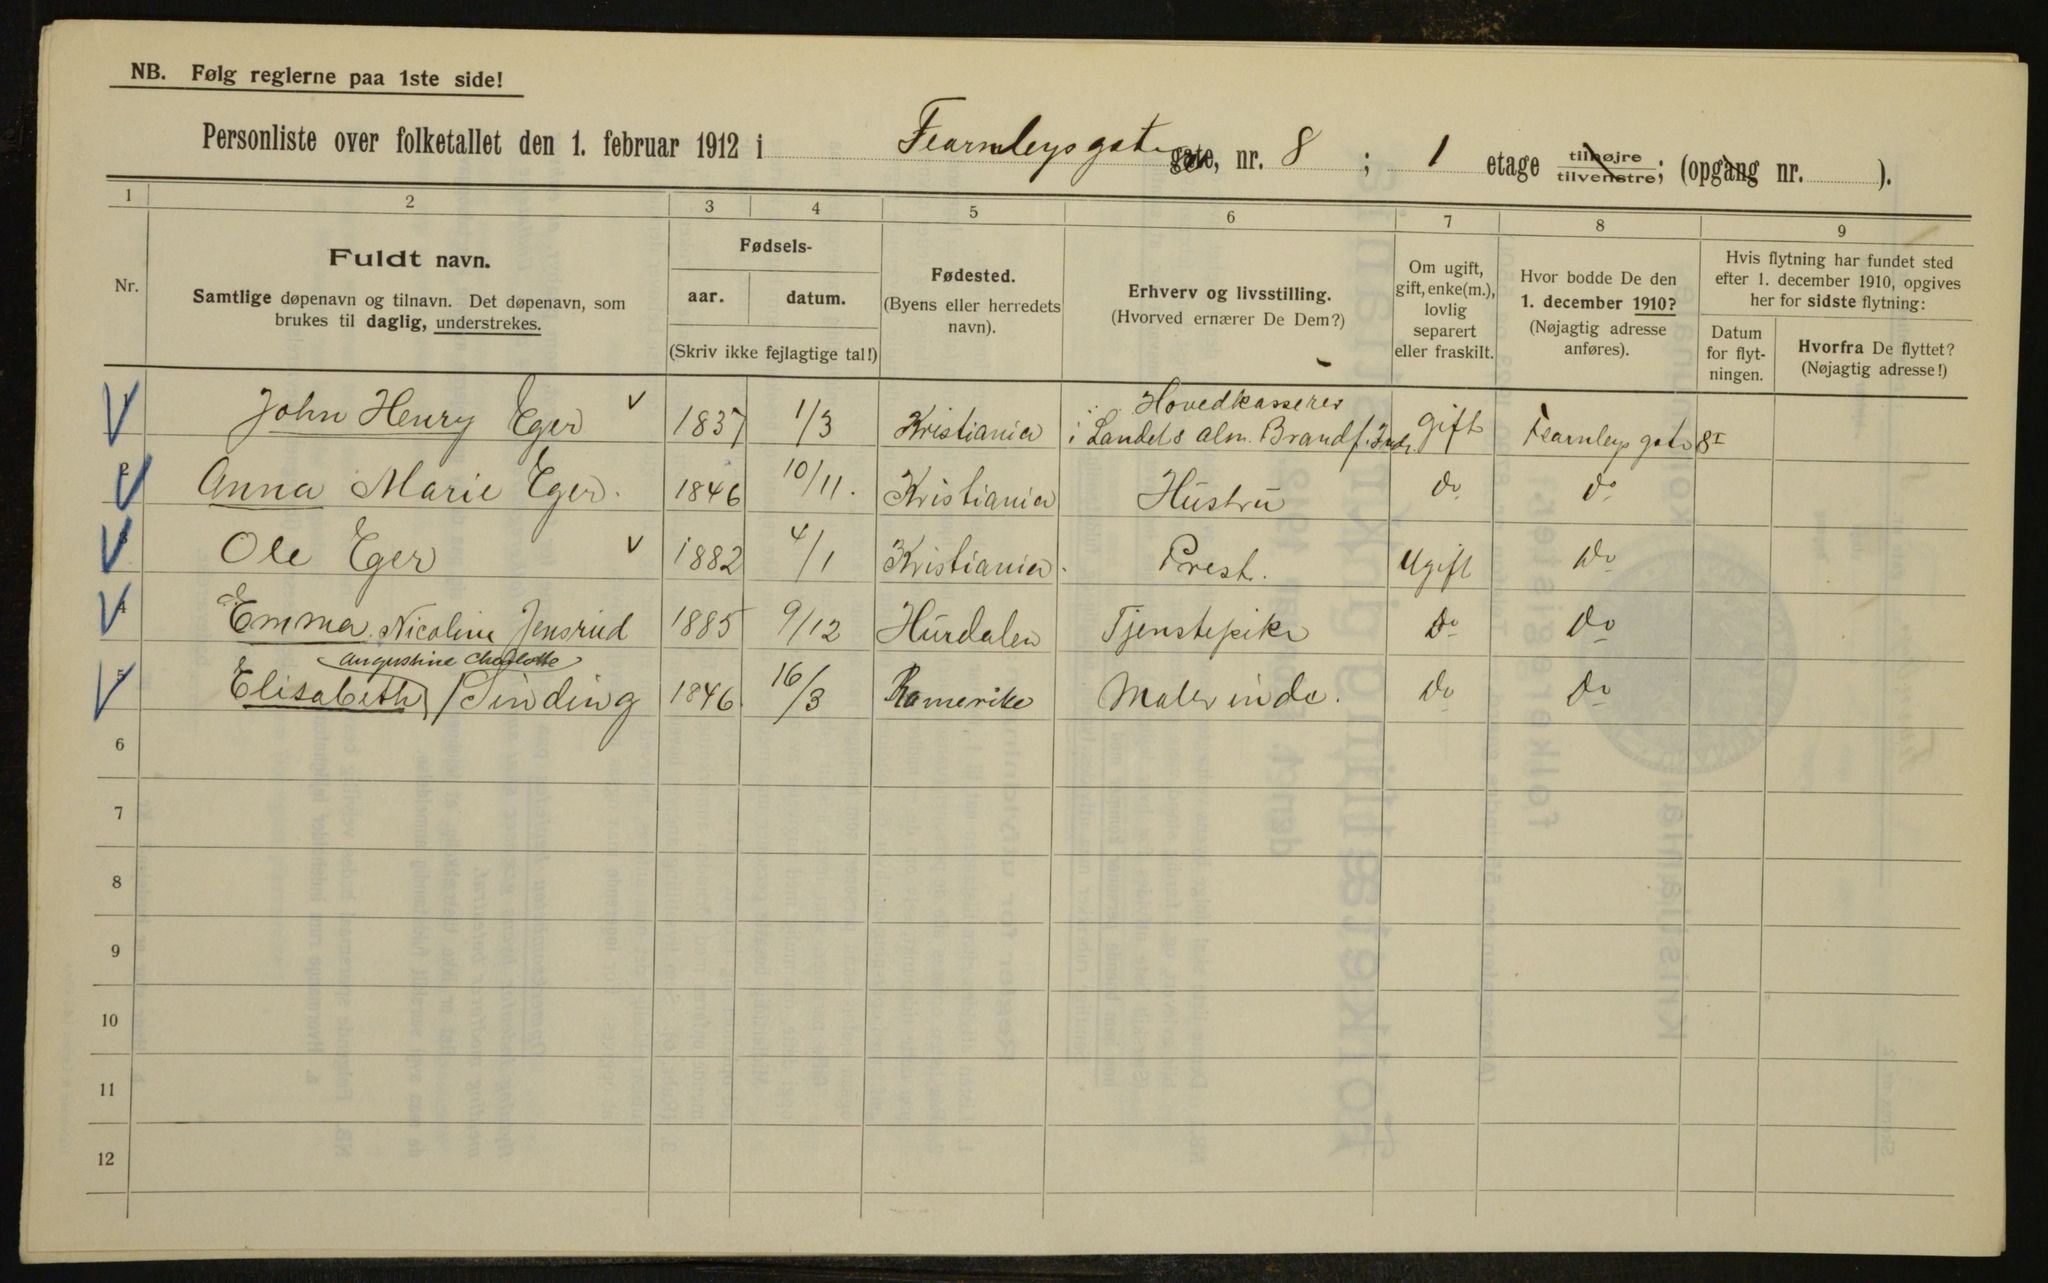 NB. Følg reglerne paa 1ste side!
Personliste over folketallet den 1. februar 1912 i Fearnleysgate gate, nr. 8 ; 1 etage tilhøjre tilvenstre; (opgang nr. ).
1 2 3 4 5 6 7 8 9
Nr.
Fuldt navn.
Samtlige døpenavn og tilnavn. Det døpenavn, som
brukes til daglig, understrekes.
Fødsels-
aar. datum.
(Skriv ikke fejlagtige tal!)
Fødested.
(Byens eller herredets
navn).
Erhverv og livsstilling.
(Hvorved ernærer De Dem?)
Om ugift,
gift, enke(m.),
lovlig
separert
eller fraskilt.
Hvor bodde De den
1. december 1910?
(Nøjagtig adresse
anføres).
Hvis flytning har fundet sted
efter 1. december 1910, opgives
her for sidste flytning:
Datum
for flyt-
ningen.
Hvorfra De flyttet?
(Nøjagtig adresse!)
1 John Henry Eger 1837 1/3 Kristiania Hovedkasserer
i Landets alm. Brandf. Indr. gift Fearnleys gate 8 I
2 Anna Marie Eger. 1846 10/11. Kristiania Hustru do do
3 Ole Eger 1882 4/1 Kristiania. Prest. Ugift do
4 Emma Nicoline Jensrud 1885 9/12 Hurdalen Tjenstepike Do Do
Augustine Charlotte
5 Elisabeth / Sinding 1846. 16/3 Romerike Malerinde. do do
6
7
8
9
10
11
12